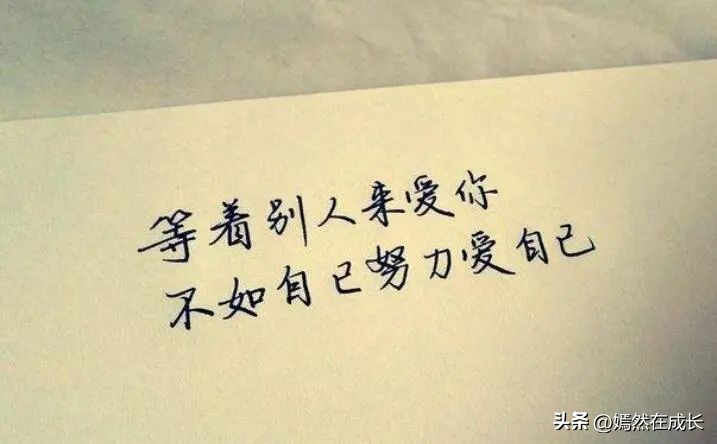 等着别人来爱你
不如自己努力爱自己
头条 @嫣然在成长